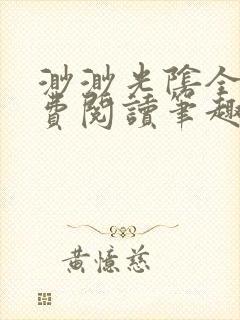 渺渺光陰全
費閱讀筆趣
黃憶慈